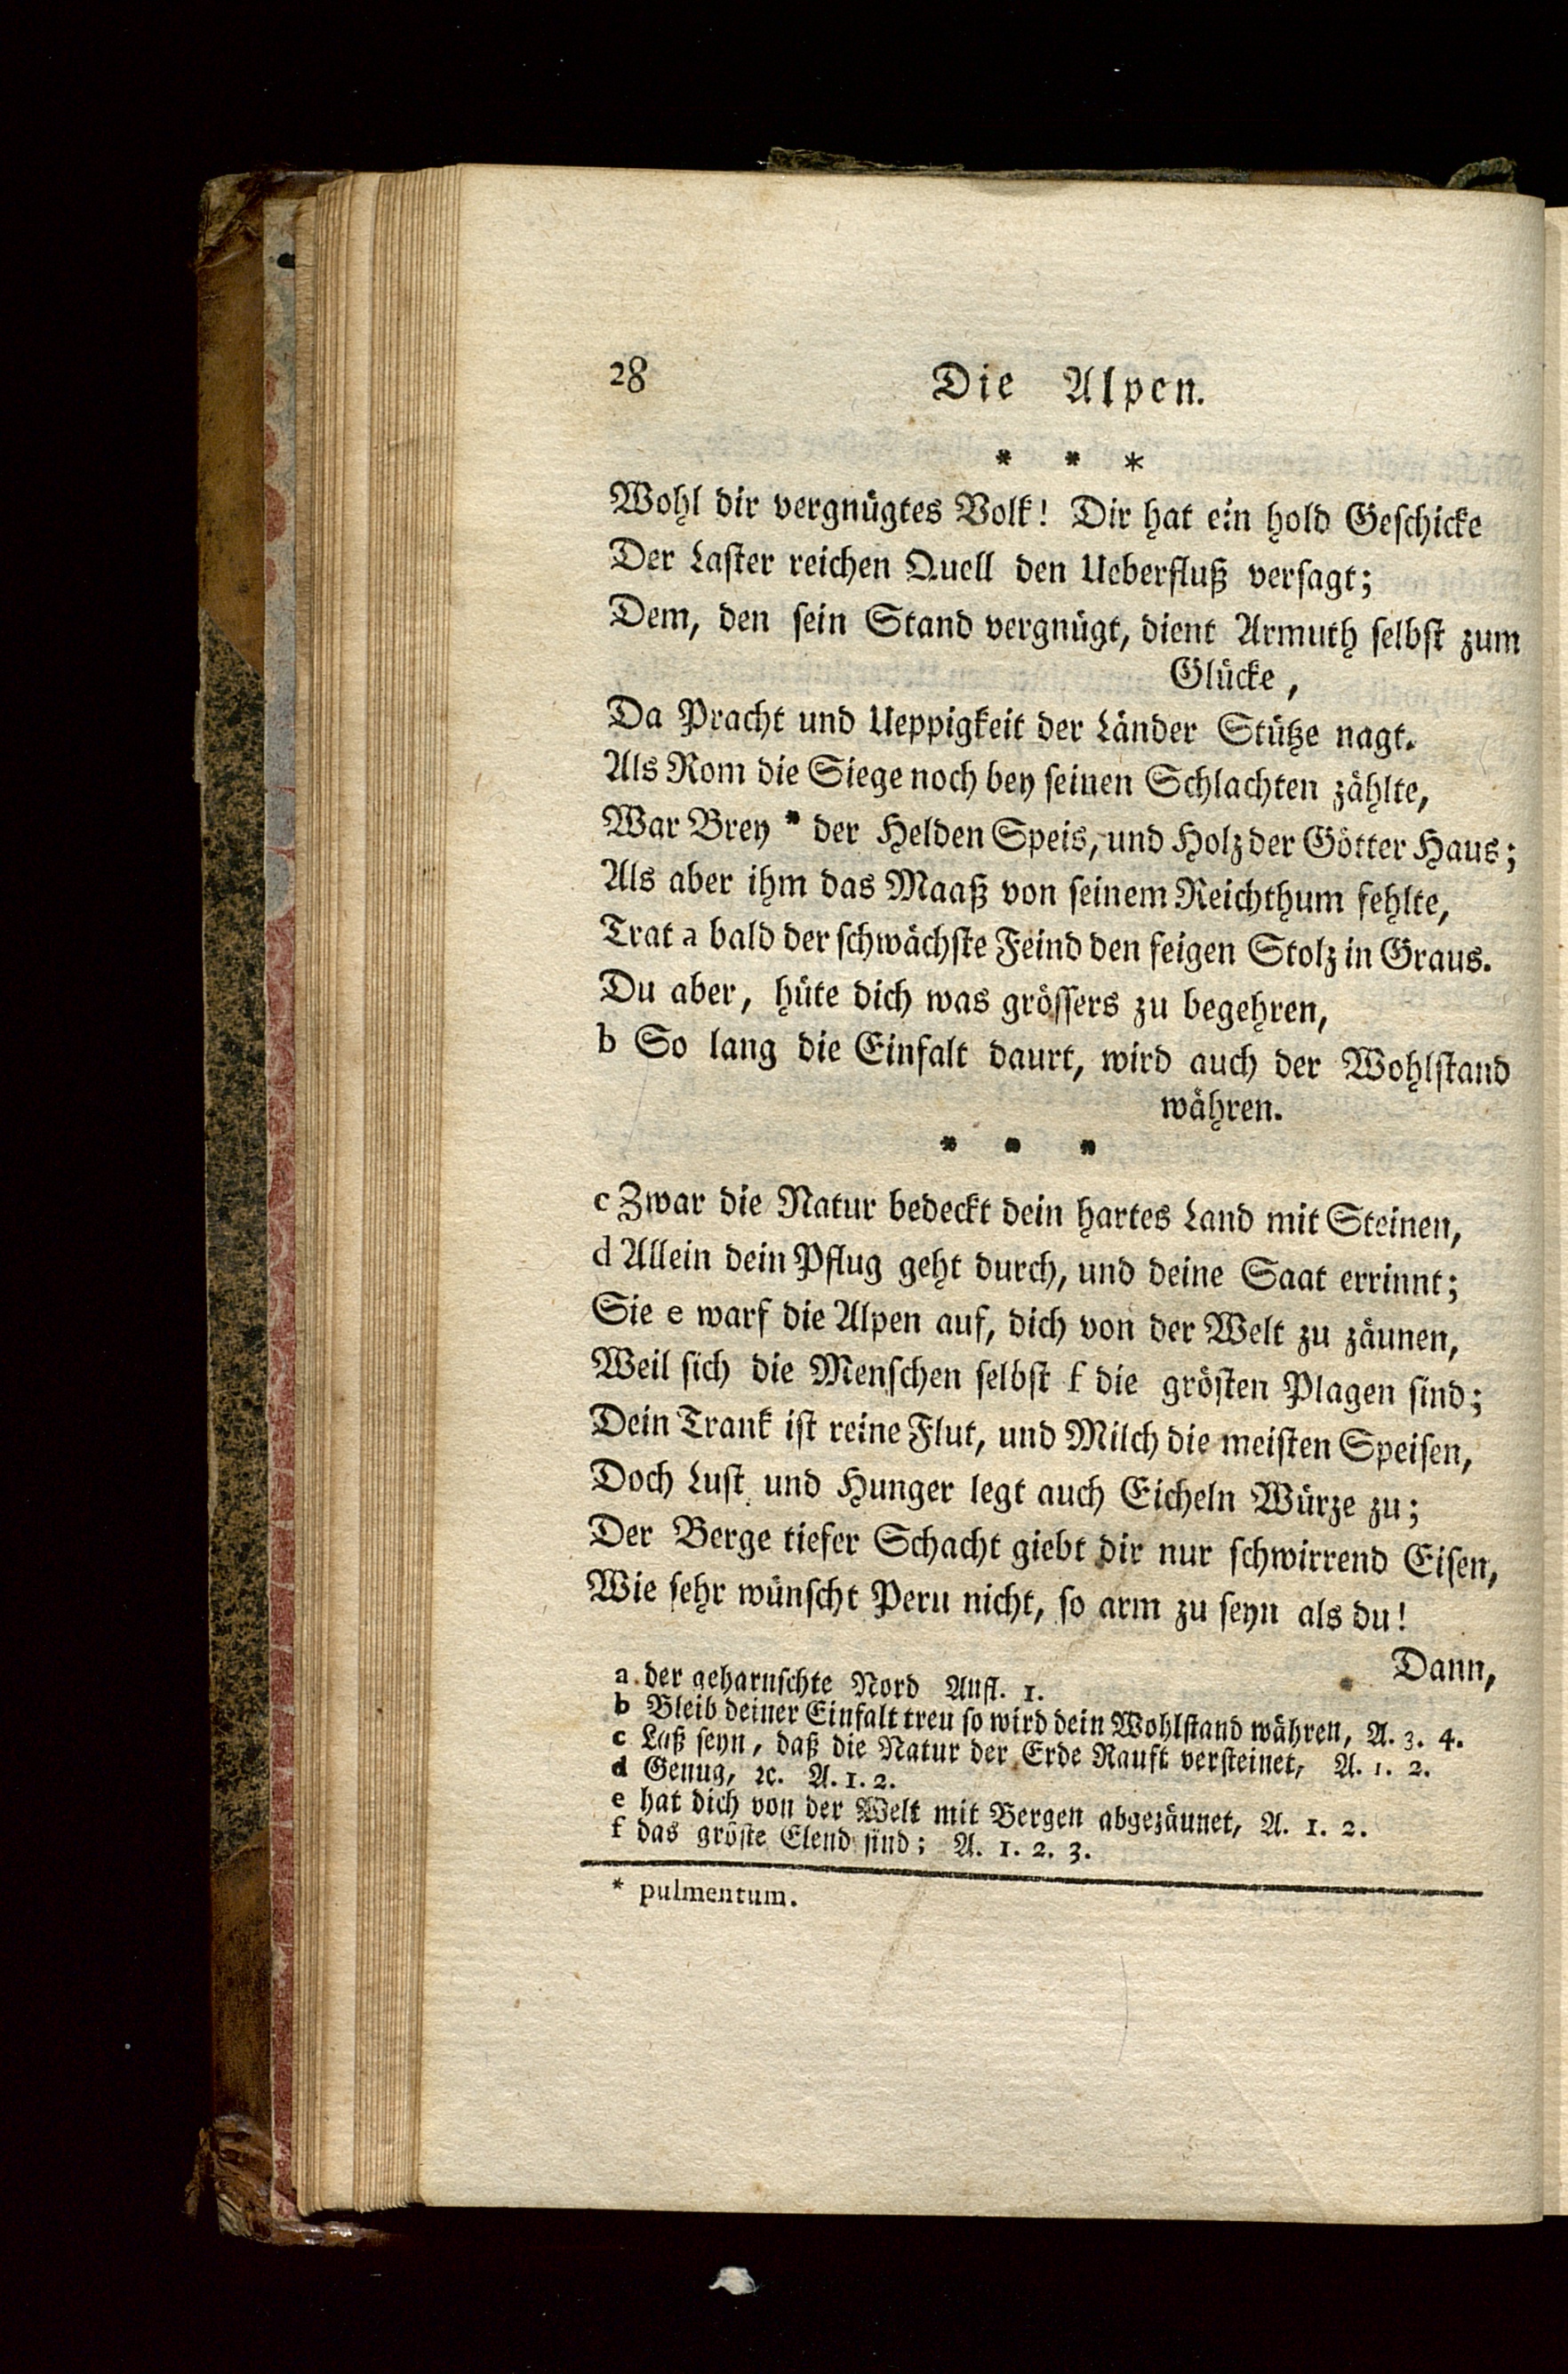 28 Die Alpen.
* * *
Wohl dir vergnügtes Volk! Dir hat ein hold Geschicke
Der Laster reichen Quell den Ueberfluß versagt;
Dem, den sein Stand vergnügt, dient Armuth selbst zum
Glücke,
Da Pracht und Ueppigkeit der Länder Stütze nagt.
Als Rom die Siege noch bey seinen Schlachten zählte,
War Brey * der Helden Speis, und Holz der Götter Haus;
Als aber ihm das Maaß von seinem Reichthum fehlte,
Trat a bald der schwächste Feind den feigen Stolz in Graus.
Du aber, hüte dich was grössers zu begehren,
b So lang die Einfalt daurt, wird auch der Wohlstand
währen.
* * *
c Zwar die Natur bedeckt dein hartes Land mit Steinen,
d Allein dein Pflug geht durch, und deine Saat errinnt;
Sie e warf die Alpen auf, dich von der Welt zu zäunen,
Weil sich die Menschen selbst f die grösten Plagen sind;
Dein Trank ist reine Flut, und Milch die meisten Speisen,
Doch Lust und Hunger legt auch Eicheln Würze zu;
Der Berge tiefer Schacht giebt dir nur schwirrend Eisen,
Wie sehr wünscht Peru nicht, so arm zu seyn als du!
Dann,
a der geharnschte Nord Aufl. 1.
b Bleib deiner Einfalt treu so wird dein Wohlstand währen, A. 3. 4.
c Laß seyn, daß die Natur der Erde Rauft versteinet, A. 1. 2.
d Genug, ꝛc. A. 1. 2.
e hat dich von der Welt mit Bergen abgezäunet, A. 1. 2.
f das gröste Elend sind; A. 1. 2. 3.
* pulmentum.